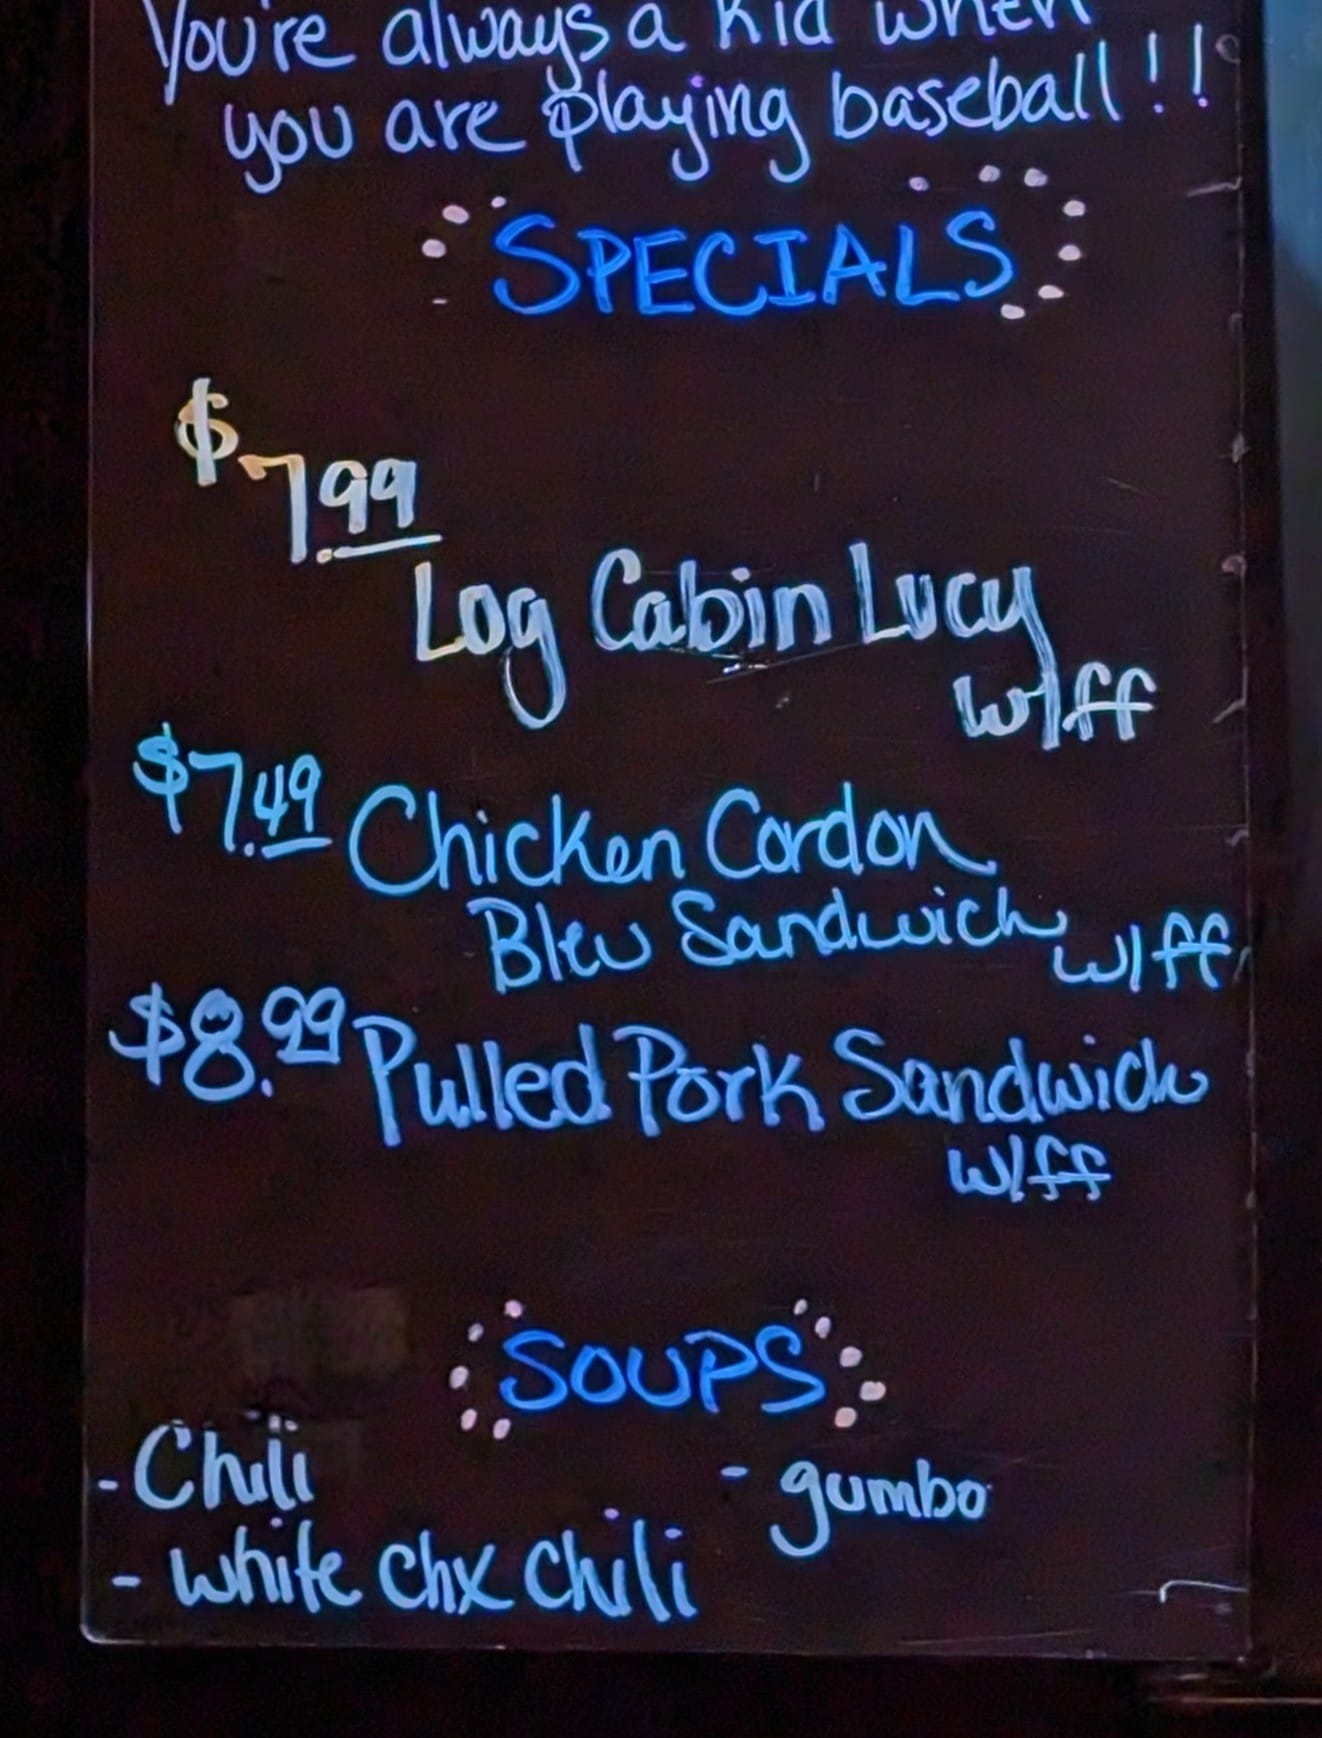 You're always a kid when
you are playing baseball!!
SPECIALS
$7.99
Log Cabin Lucy
w/ff
$7.49 Chicken Cordon
Bleu Sandwich w/ff
$8.99 Pulled Pork Sandwich
w/ff
SOUPS
- Chili
- gumbo
- white chx chili